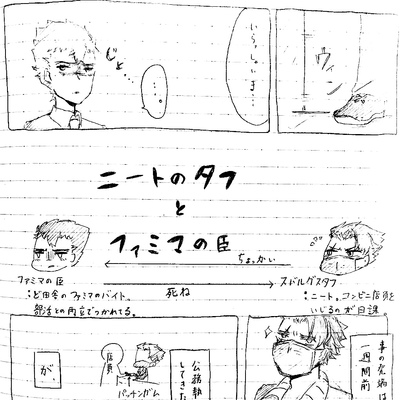 ウィン
いらっしゃいませ…
じと…
…。
ニートのタフ
と
ファミマの臣
ちょっかい
死ね
ファミマの臣
：ど田舎のファミマのバイト。
部活との両立でつかれてる。
スバルグスタフ
：ニート。コンビニ店員を
いじるのが日課
事の発端は
一週間前
公務執
してきた
店員
パッチンガム
が、